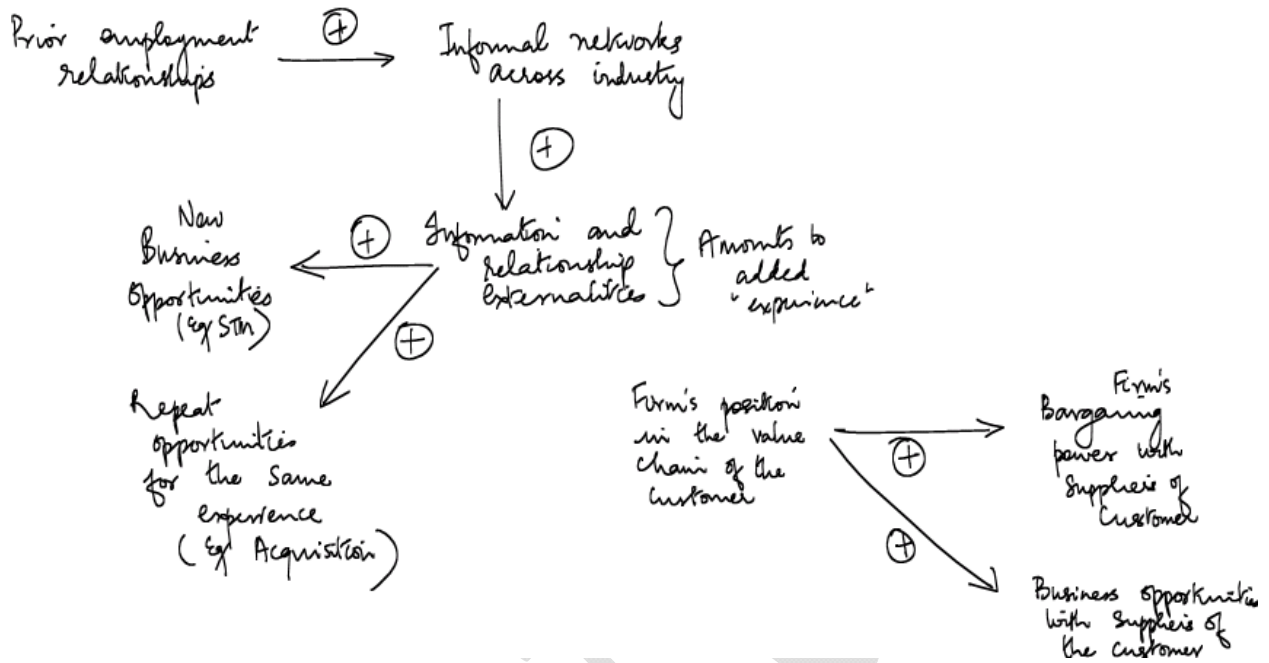 Prior employment
relationships
+
Informal networks
across industry
+
New
Business
opportunities
(Eg STM)
+
Information and
relationship
externalities
Amounts to
added
"experience"
+
Repeat
opportunities
for the same
experience
(Eg Acquisition)
Firm's position
in the value
chain of the
customer
+
+
Firm's
Bargaining
power with
Suppliers of
Customer
Business opportunities
with Suppliers of
the customer